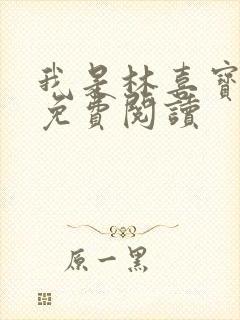 我是林喜寶
免費閱讀
原一黑